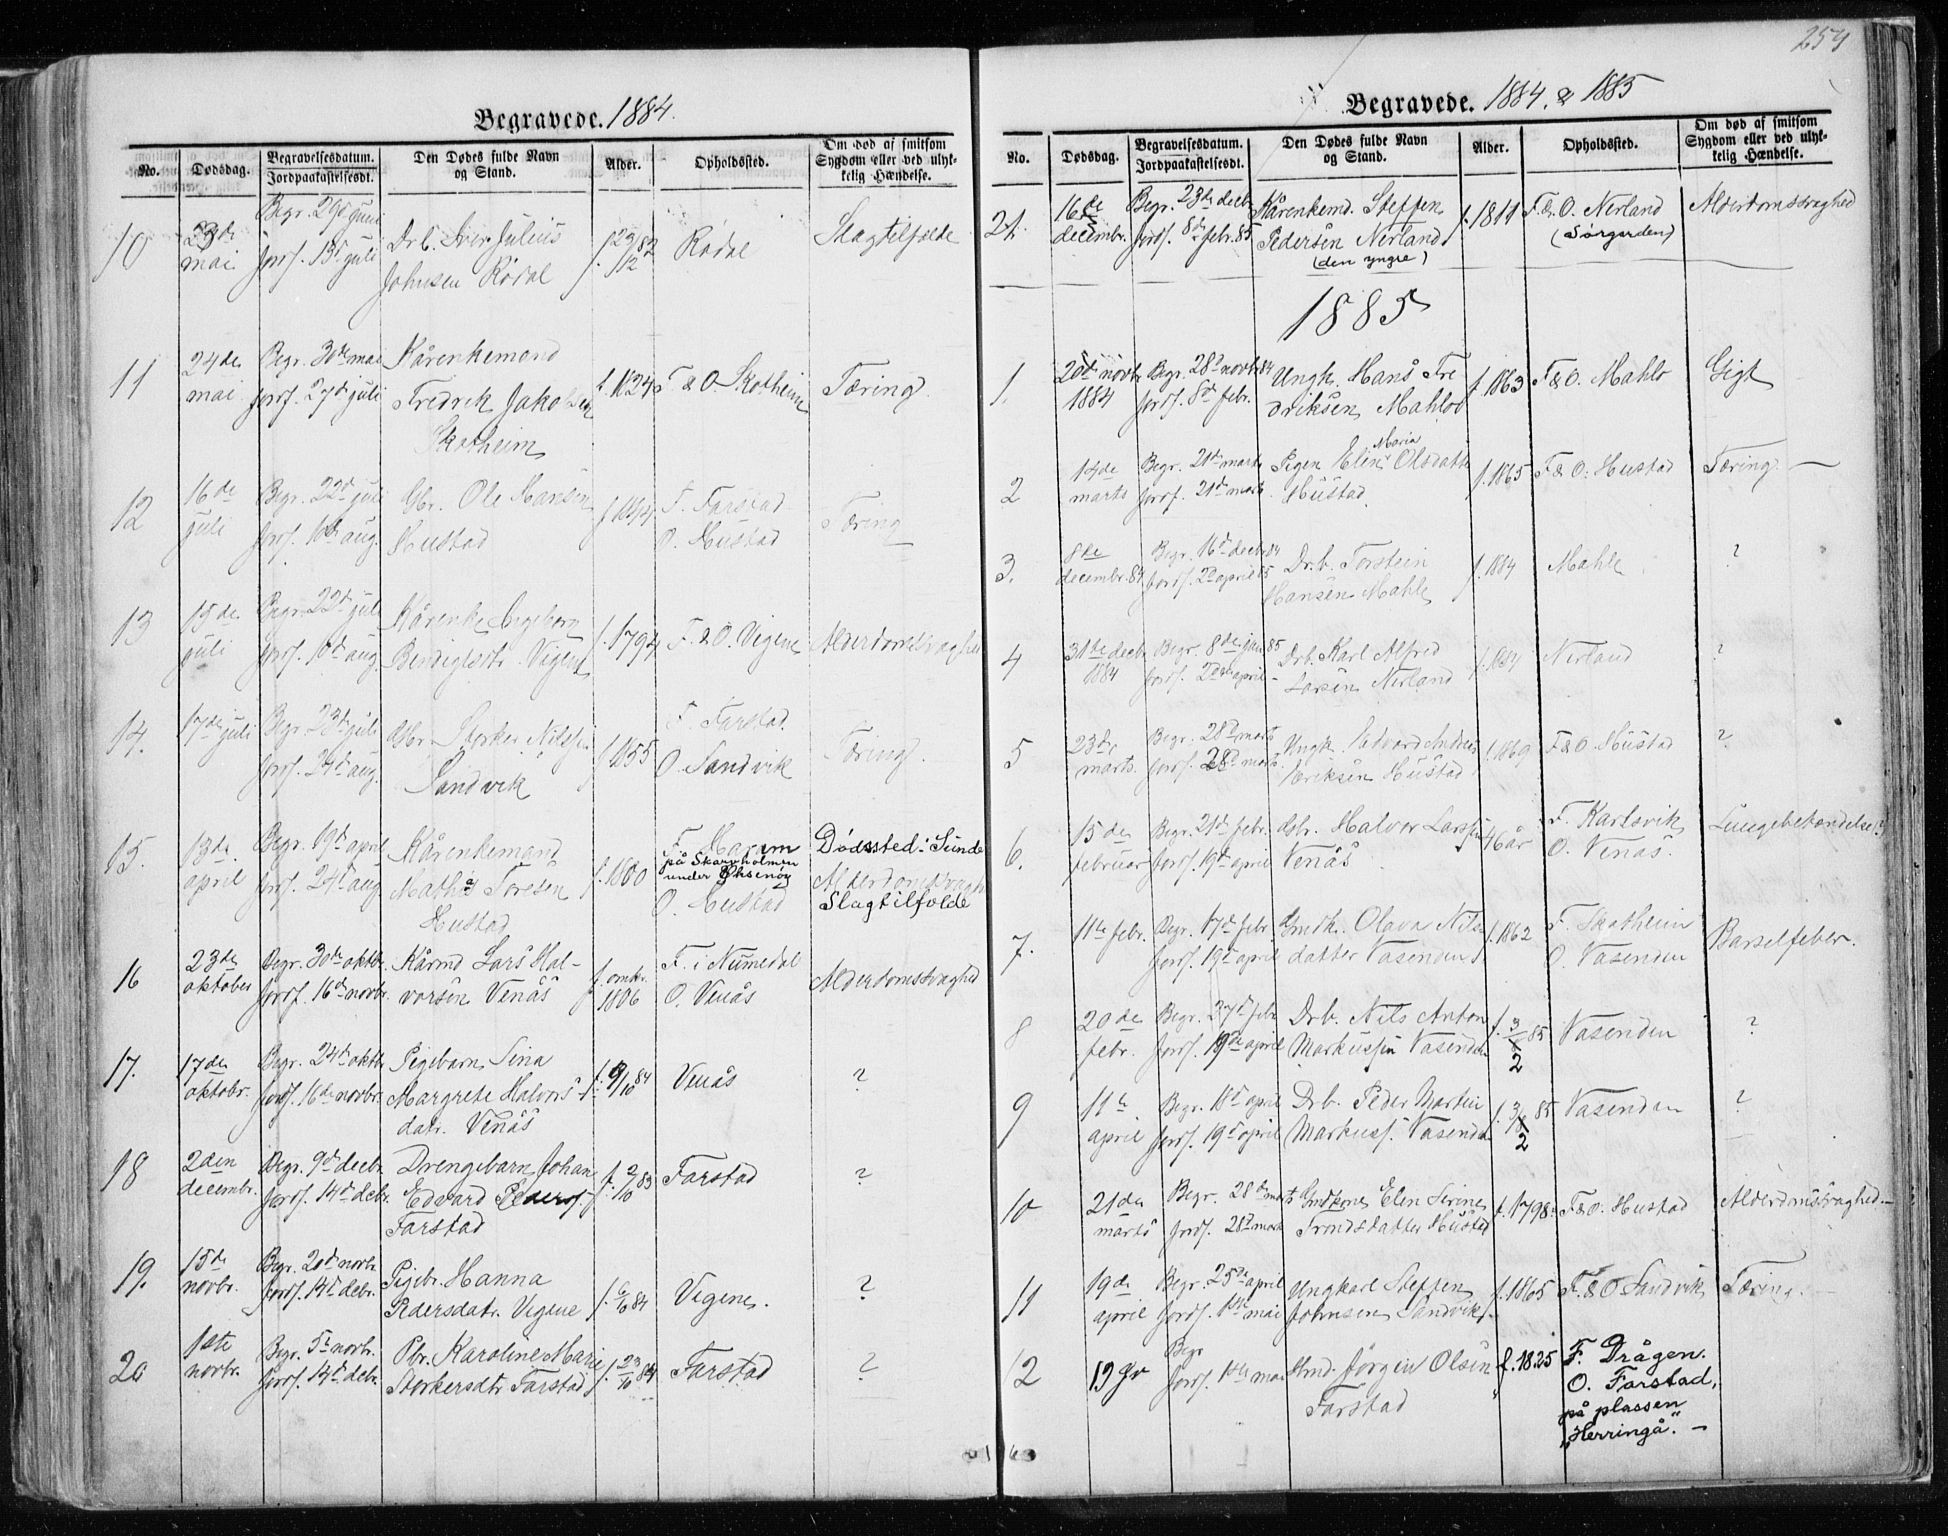 254
Begravede. 1884.
No. Dødsdag. Begravelsesdatum. Jordpaakastelsesdt. Den Dødes fulde Navn og Stand. Alder. Opholdssted. Om død af smitsom Sygdom eller ved ulykkelig Hændelse.
10 23de mai Begr. 29d juni Jordf. 13d juli Drb. Iver Julius Johnsen Rødal f. 23/12 82 Rødal Slagtilfælde
11 24de mai Begr. 30te mai Jordf. 27d juli Kårenkemand Fredrik Jakobsen Skotheim f. 1824 F. & O. Skotheim Tæring
12 16de juli Begr. 22d juli Jordf. 10de aug. Gbr. Ole Hansen Hustad f. 1844 F. Farstad O. Hustad Tæring
13 15de juli Begr. 22d juli Jordf. 10d aug. Kårenke Ingeborg Bendigtsdtr. Vigene f. 1794 F. & O. Vigene Alderdomssvaghed
14. 17de juli Begr. 23de juli Jordf. 24d aug. Gbr. Storker Nilssen Sandvik f. 1855 F. Farstad. O. Sandvik Tæring.
15. 13de april Begr. 19d april Jordf. 24d aug. Kårenkemand Mathis Toresen Hustad f. 1800 F. Haram på Skarvholmen under Øksenøy O. Hustad Dødssted: Sunde Alderdomssvagh. Slagtilfælde
16 23de oktober Begr. 30te oktbr. Jordf. 16d novbr. Kårmd Lars Halvorsen Venås f. omkr. 1806 F. i Numedal O. Venås Alderdomssvaghed
17. 17de oktobr. Begr. 24de oktbr. Jordf. 16de novbr. Pigebarn Sina Margrete Halvorsdatr. Venås f. 9/10 84 Venås ?
18 2den decembr. Begr. 9d decbr. Jordf. 14d debr. Drengebarn Johan Edvard Peders. Farstad f. 2/10 83 Farstad ?
19. 15de novbr. Begr. 20d novbr. Jordf. 14d debr. Pigebr. Hanna Pedersdatr. Vigene f. 6/10 84 Vigene. ?
20 1ste novbr. Begr. 5te novbr. Jordf. 14d debr. Pbr. Karoline Marie Storkersdtr. Farstad f. 23/10 84 Farstad ?
Begravede. 1884. & 1885
No. Dødsdag. Begravelsesdatum. Jordpaakastelsesdt. Den Dødes fulde Navn og Stand. Alder. Opholdssted. Om død af smitsom Sygdom eller ved ulykkelig Hændelse.
21. 16de decembr. Begr. 23de decbr. Jordf. 8de febr. 85 Kårenkemd. Steffen Pedersen Nerland (den yngre) f. 1811 F. & O. Nerland (Sørgarden) Alderdomssvaghed
1885
1. 20d novbr. 1884 Begr. 28d novbr 84 Jordf. 8d febr. Ungk. Hans Fredriksen Mahlo f. 1863 F. & O. Mahlo Gigt
2 14de marts Begr. 21d marts Jordf. 21d marts. Pigen Elen Maria Olsdatter Hustad. f. 1865 F. & O. Hustad Tæring. —
3. 8de decembr. 84 Begr. 16d decbr 84 Jordf. 2d april 85 Dr.b. Torstein Hansen Mahle f. 1884 Mahle ?
4 31te decbr 1884 Begr. 8de jan 85 Jordf. 2den april Drb. Karl Alfred Larsen Nerland f. 1884 Nerland ?
5 23de marts. Begr. 28d marts Jordf. 28d marts. Ungk. Edvard Andreas Eriksen Hustad f. 1869 F. & O. Hustad ?
6. 15de februar Begr. 21d febr. Jordf. 19d april Gbr. Halvor Larssen Venås 46 år F. Karlsvik O. Venås. Lungebetændelse (?)
7. 11te febr. Begr. 17d febr. Jordf. 19d april Gmdk. Olava Nilsdatter Vasenden f. 1862 F. Skotheim O. Vasenden Barselfeber.
8 20de febr. Begr. 27d febr Jordf. 19de april Drb. Nils Anton Markussen Vasenden f. 3/2 85 Vasenden ?
9 11te april Begr. 18d april Jordf. 19d april Drb. Peder Martin Markuss. Vasenden f. 3/2 85 Vasenden ?
10 21de marts Begr. 28de marts Jordf. 28d marts Gmdkone Elen Serine Trondsdatter Hustad f. 1798. F. & O. Hustad Alderdomssvaghed. —
11 19de april Begr. 25de april Jordf. 1ste mai Ungkarl Steffen Johnsen Sandvik f. 1865 F. & O. Sandvik Tæring. —
12 19 Begr Jordf. 1ste mai Jørgen Olsen Farstad f. 1825 F. Drågen. O. Farstad, på plassen „Herringå.“ —